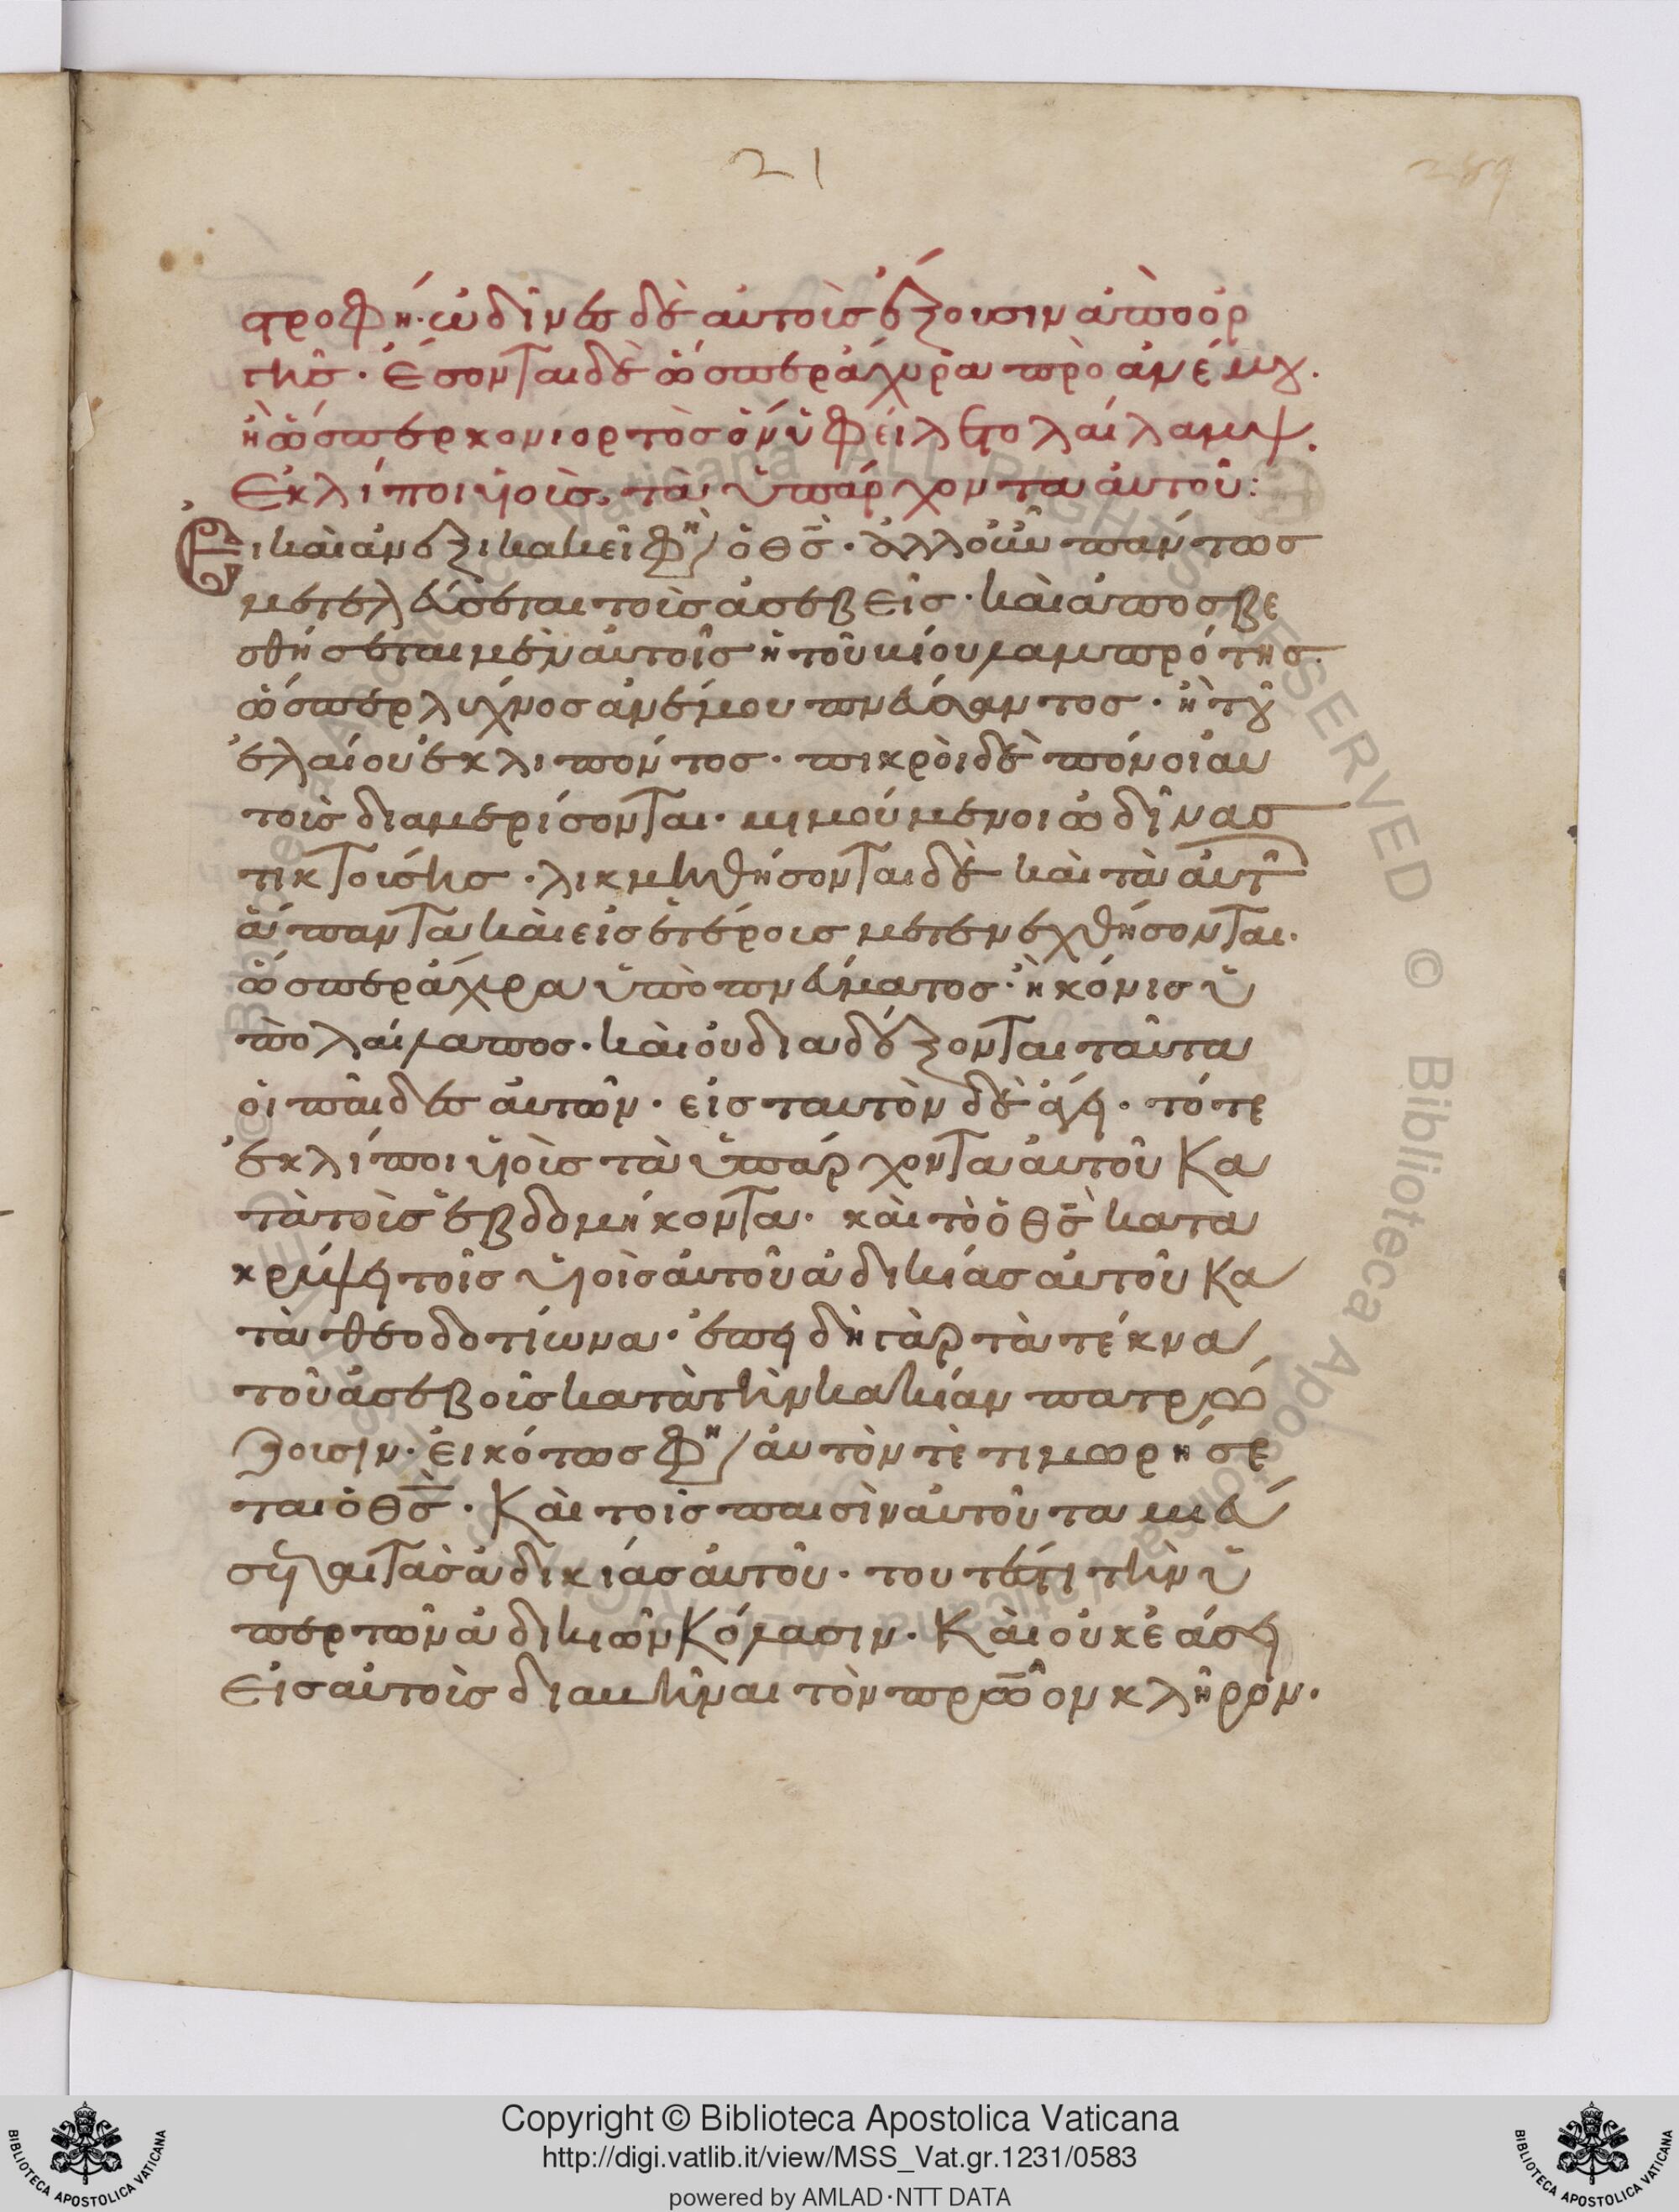 21
289
στροφή· ὠδῖνες δὲ αὐτοὺς ἕξουσιν ἀπὸ ὀρ
γῆς· ἔσονται δὲ ὥσπερ ἄχυρα πρὸ ἀνέμου.
ἢ ὥσπερ κονιορτὸς ὃν ὑφείλετο λαίλαψ.
Ἐκλίποι υἱοὺς τὰ ὑπάρχοντα αὐτοῦ:
Εἰ καὶ ἀνεξικακεῖ φη ὁ θς· ἀλλ' οὖν πάντως
μετελεύσεται τοὺς ἀσεβεῖς· καὶ ἀποσβε
σθήσεται μὲν αὐτοῖς ἡ τοῦ βίου λαμπρότης·
ὥσπερ λύχνος ἀνέμου πνεύσαντος· ἢ τοῦ
ἐλαίου ἐκλιπόντος· πικροὶ δὲ πόνοι αὐ
τοὺς διαμερίσονται· μιμούμενοι ὠδῖνας
τικτούσης· λικμηθήσονται δὲ καὶ τὰ αὐτ
ἅπαντα καὶ εἰς ἑτέρους μετενεχθήσονται·
ὥσπερ ἄχυρα ὑπὸ πνεύματος· ἢ κόνις ὑ
πὸ λαίλαπος· καὶ οὐ διαδέξονται ταῦτα
οἱ παῖδες αὐτῶν· εἰς ταυτὸν δὲ ἄγει· τό τε
ἐκλίποι υἱοὺς τὰ ὑπάρχοντα αὐτοῦ κα
τὰ τοὺς ἑβδομήκοντα· καὶ τὸ ὁ θς κατα
κρύψει τοῖς υἱοῖς αὐτοῦ ἀδικίας αὐτοῦ κα
τὰ θεοδοτίωνα· ἐπειδὴ γὰρ τὰ τέκνα
τοῦ ἀσεβοῦς κατὰ τὴν κακίαν πατρῴ
ζουσιν· εἰκότως φη αὐτόν τε τιμωρήσε
ται ὁ θς· Καὶ τοῖς παισὶν αὐτοῦ ταμιεύ
σηται τὰς ἀδικίας αὐτοῦ· τουτέστι τὴν ὑ
πὲρ τῶν ἀδικιῶν κόλασιν· Καὶ οὐκ ἐάσει
εἰς αὐτοὺς διαμεῖναι τὸν πρῶον κλῆρον·
Copyright © Biblioteca Apostolica Vaticana
http://digi.vatlib.it/view/MSS_Vat.gr.1231/0583
powered by AMLAD·NTT DATA